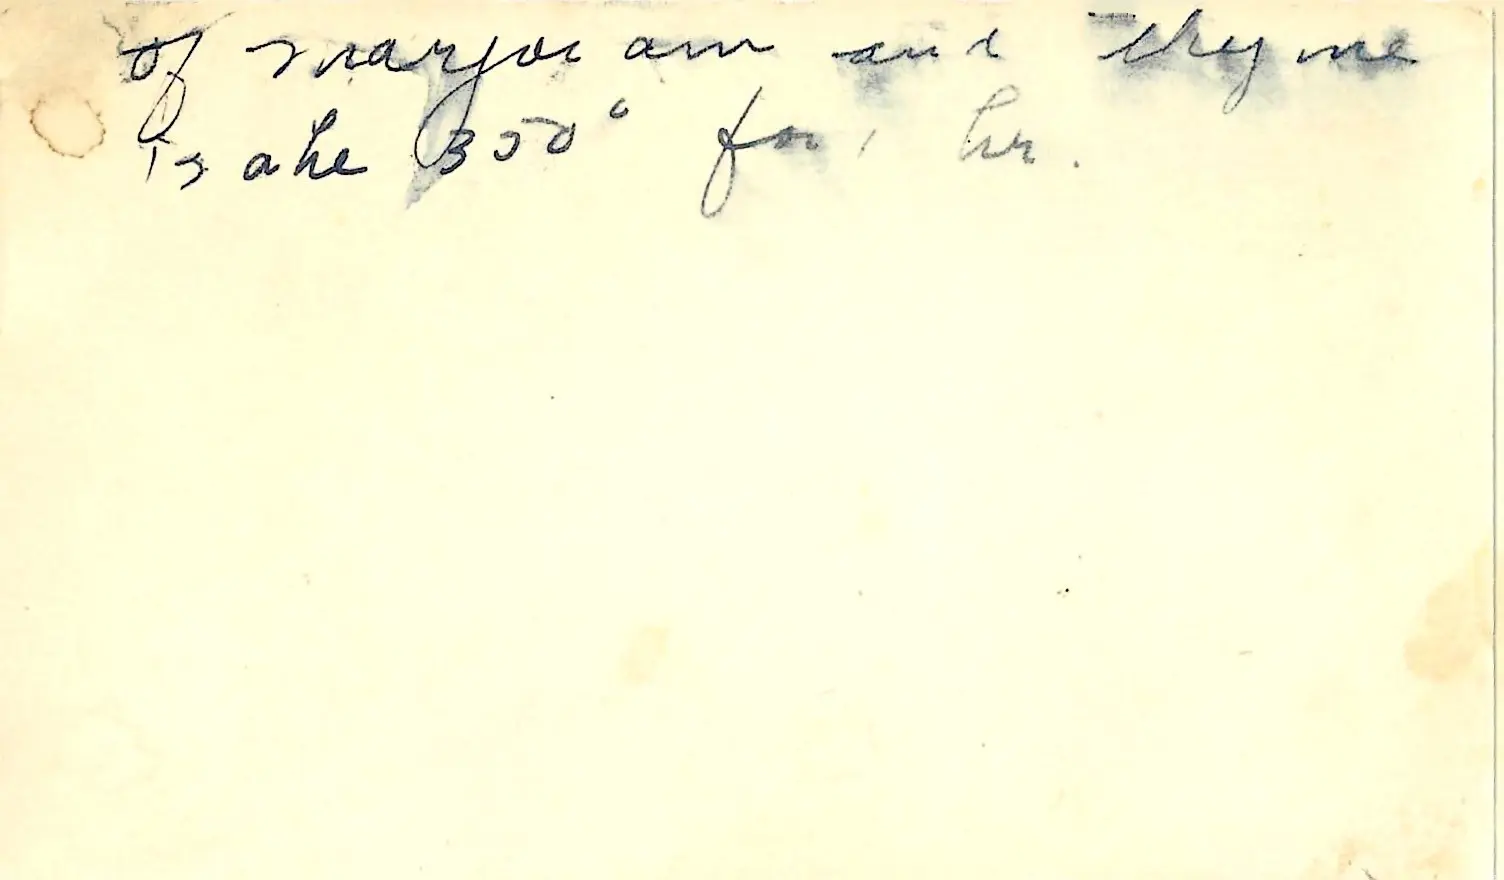 of marjoram and thyme
Bake 350° for 1 hr.